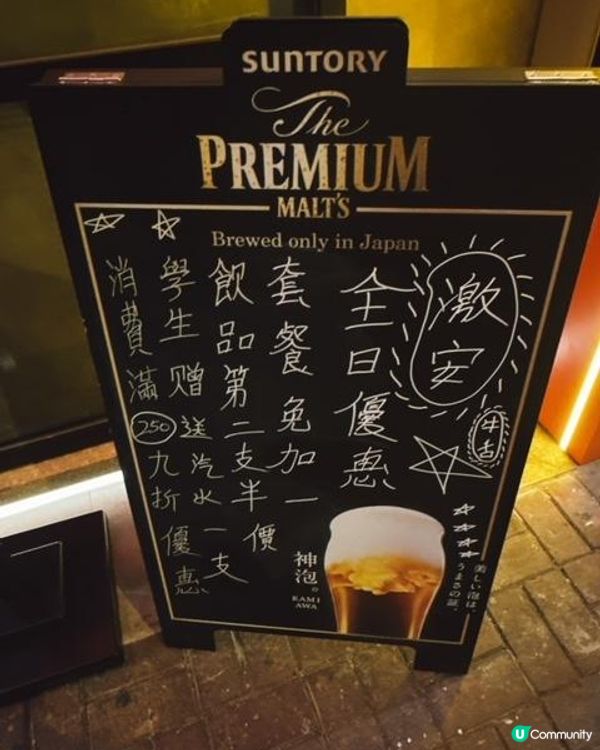 SUNTORY
The
PREMIUM
MALT'S
Brewed only in Japan
激安
牛舌
全日優惠
套餐免加一
飲品第二支半價
學生赠送汽水一支
消費滿250九折優惠
神泡。
KAMI
AWA
美しい泡は、
うまさの証。
U Community